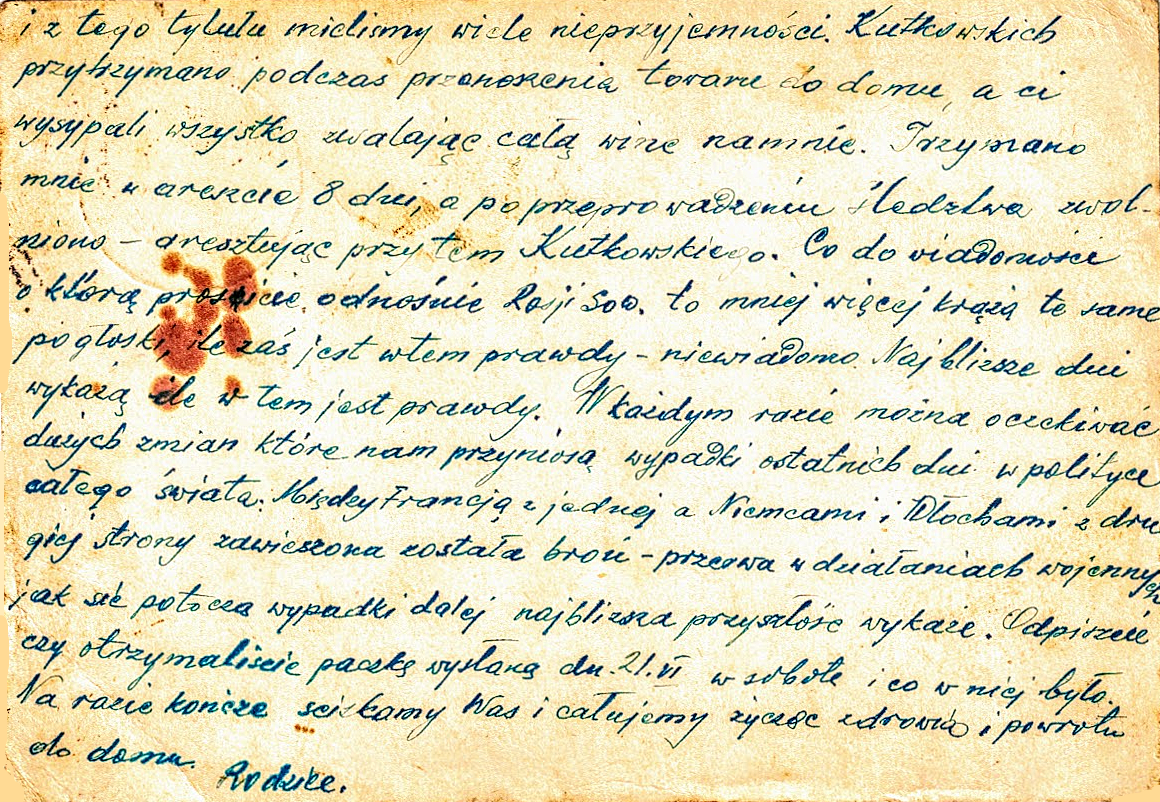 i z tego tytułu mieliśmy wiele nieprzyjemności. Kutkowskich
przytrzymano podczas przenoszenia towaru do domu, a ci
wysypali wszystko zwalając całą winę namnie. Trzymano
mnie w areszcie 8 dni, a po przeprowadzeniu śledztwa zwol-
niono – aresztując przy tem Kutkowskiego. Co do wiadomości
o którą prosicie odnośnie Rosji Sow. to mniej więcej krążą te same
pogłoski, ile zaś jest wtem prawdy – niewiadomo. Najbliższe dni
wykażą ile w tem jest prawdy. W każdym razie można oczekiwać
dużych zmian które nam przyniosą wypadki ostatnich dni w polityce
całego świata. Między Francją z jednej a Niemcami i Włochami z dru
giej strony zawieszona została broń – przerwa w działaniach wojennych
jak się potoczą wypadki dalej najbliższa przyszłość wykaże. Odpiszcie
czy otrzymaliście paczkę wysłaną dn. 21.VI w sobotę i co w niej było.
Na razie kończę sciskamy Was i całujemy życząc zdrowia i powrotu
do domu.
Rodzice.